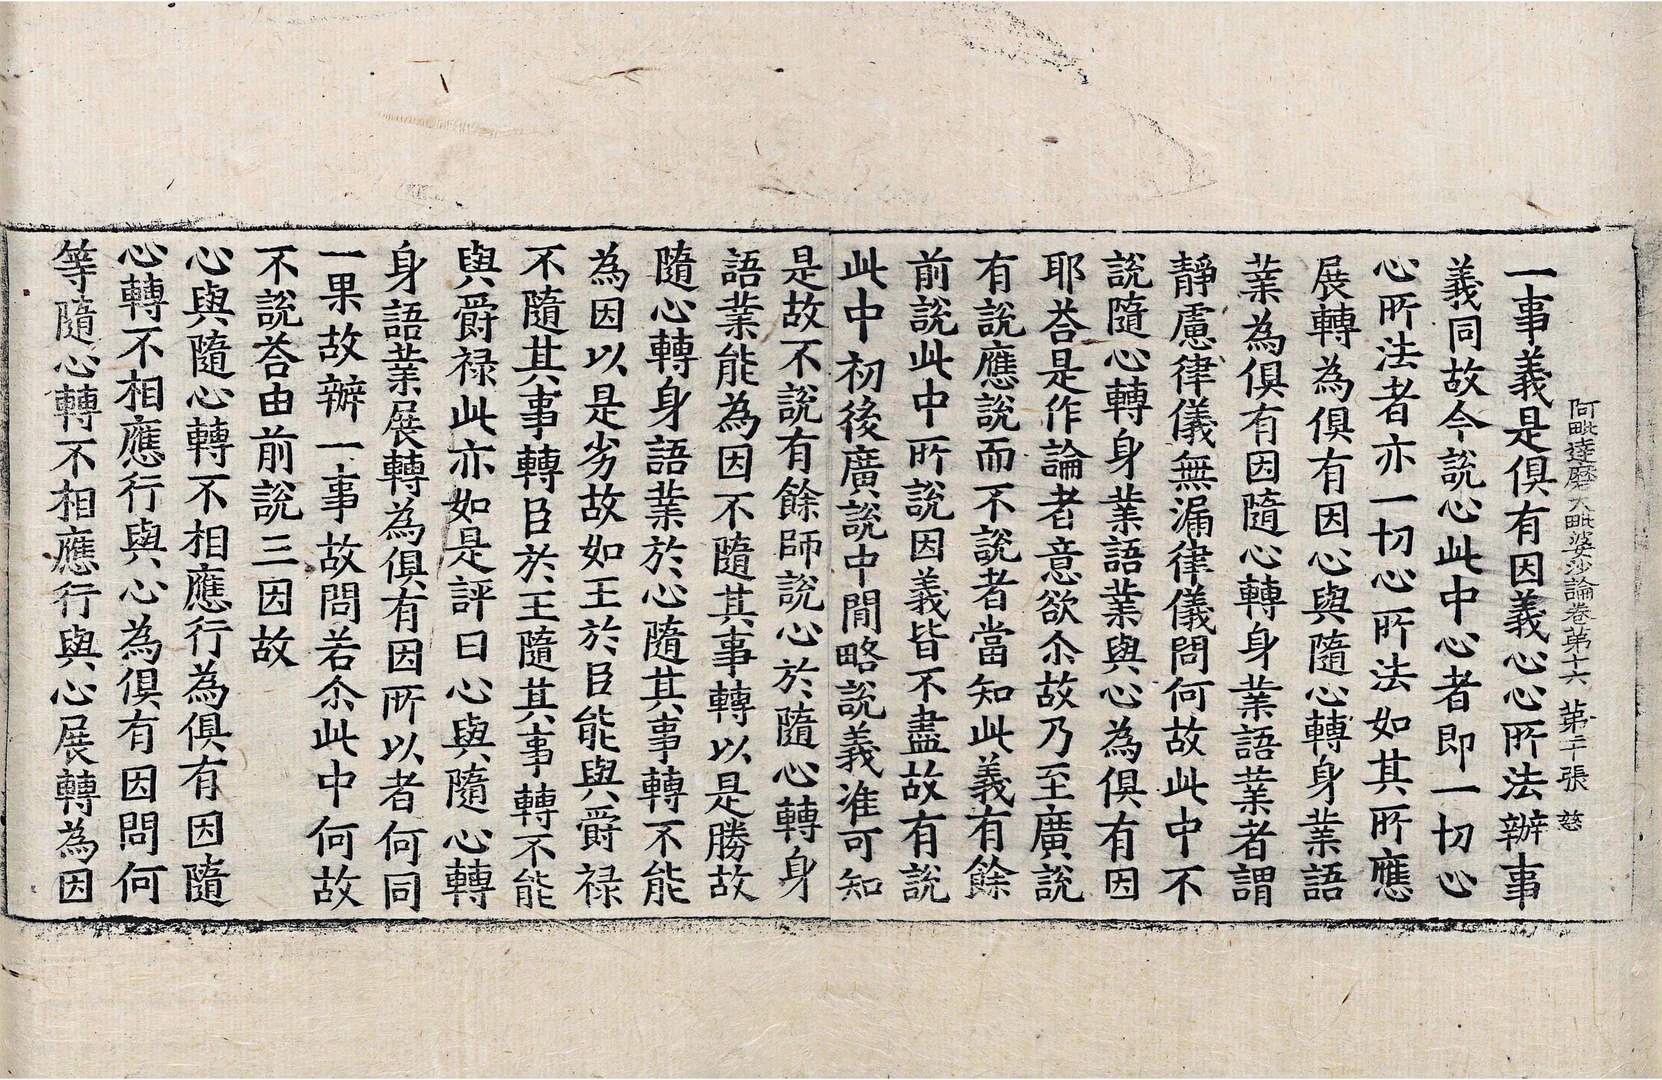 阿毗達磨大毗婆沙論卷第十六 第二十張 慈
一事義是俱有因義心心所法辦事
義同故今說心此中心者即一切心
心所法者亦一切心所法如其所應
展轉為俱有因心與隨心轉身業語
業為俱有因隨心轉身業語業者謂
靜慮律儀無漏律儀問何故此中不
說隨心轉身業語業與心為俱有因
耶荅是作論者意欲尒故乃至廣說
有說應說而不說者當知此義有餘
前說此中所說因義皆不盡故有說
此中初後廣說中閒略說義准可知
是故不說有餘師說心於隨心轉身
語業能為因不隨其事轉以是勝故
隨心轉身語業於心隨其事轉不能
為因以是劣故如王於臣能與爵祿
不隨其事轉臣於王隨其事轉不能
與爵祿此亦如是評曰心與隨心轉
身語業展轉為俱有因所以者何同
一果故辦一事故問若尒此中何故
不說荅由前說三因故
心與隨心轉不相應行為俱有因隨
心轉不相應行與心為俱有因問何
等隨心轉不相應行與心展轉為因